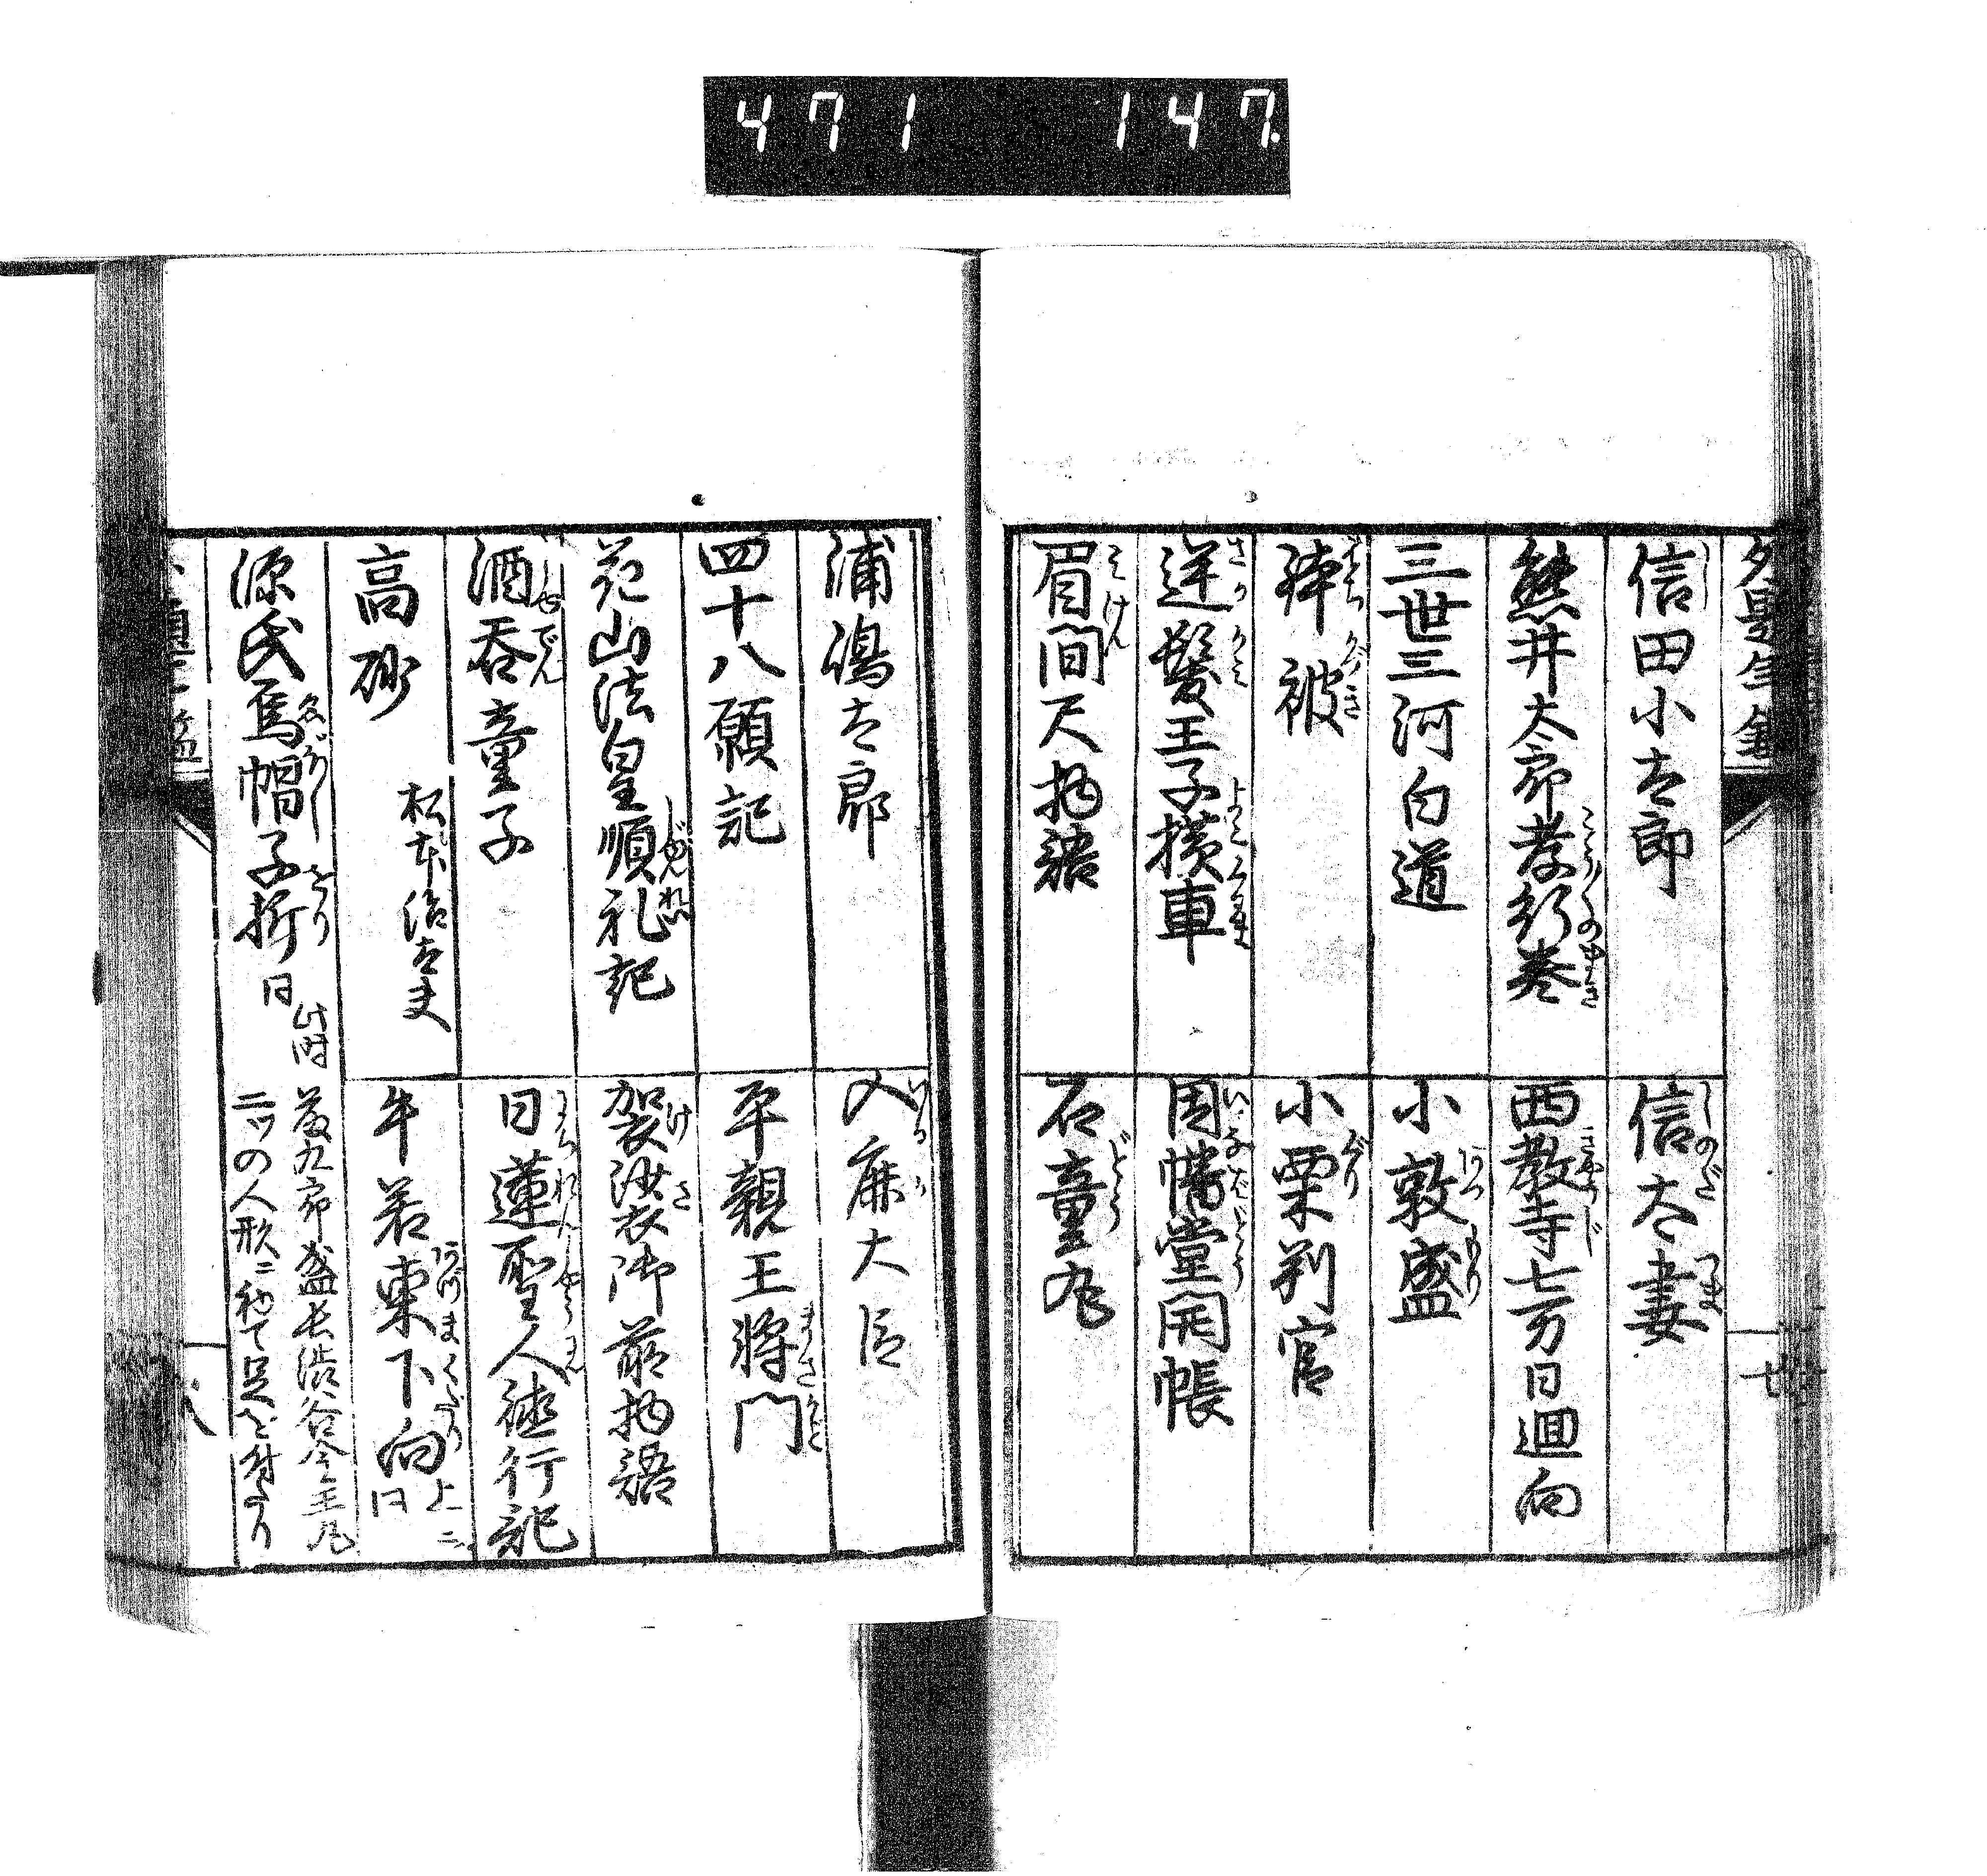 471 147.
信田小太郎
信太妻
熊井太郎孝行巻
西教寺七万日廻向
三世三河白道
小敦盛
鉢被
小栗判官
逆髪王子横車
因幡堂開帳
眉間尺物語
石童丸
浦嶋太郎
入鹿大臣
四十八願記
平親王将門
花山法皇順礼記
袈裟御前物語
酒呑童子
日蓮聖人徳行記
高砂 松本治太夫
牛若東下向 上ニ同
源氏烏帽子折 同 此時
藤九郎盛長渋谷金王丸
二ツの人形ニ初て足を付たり